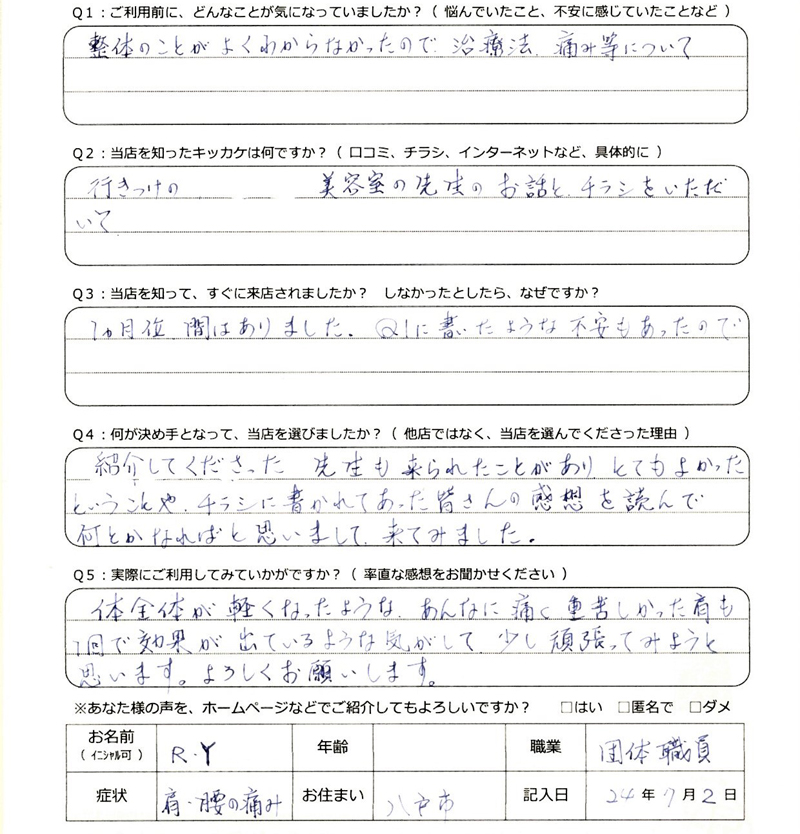 Q1：ご利用前に、どんなことが気になっていましたか？（ 悩んでいたこと、不安に感じていたことなど ）
整体のことがよくわからなかったので、治療法、痛み等について
Q2：当店を知ったキッカケは何ですか？（ 口コミ、チラシ、インターネットなど、具体的に ）
行きつけの 美容室の先生のお話と、チラシをいただ
いて
Q3：当店を知って、すぐに来店されましたか？ しなかったとしたら、なぜですか？
1ヵ月位 間はありました。Q1に書いたような不安もあったので
Q4：何が決め手となって、当店を選びましたか？（ 他店ではなく、当店を選んでくださった理由 ）
紹介してくださった 先生も来られたことがあり とてもよかった
ということや、チラシに書かれてあった皆さんの感想を読んで
何とかなればと思いまして、来てみました。
Q5：実際にご利用してみていかがですか？（ 率直な感想をお聞かせください ）
体全体が軽くなったような、あんなに痛く重苦しかった肩も
1回で効果が出ているような気がして、少し頑張ってみようと
思います。よろしくお願いします。
※あなた様の声を、ホームページなどでご紹介してもよろしいですか？ □はい □匿名で □ダメ
お名前 R・Y 年齢 職業 団体職員
（ｲﾆｼｬﾙ可）
症状 肩・腰の痛み お住まい 八戸市 記入日 24年7月2日